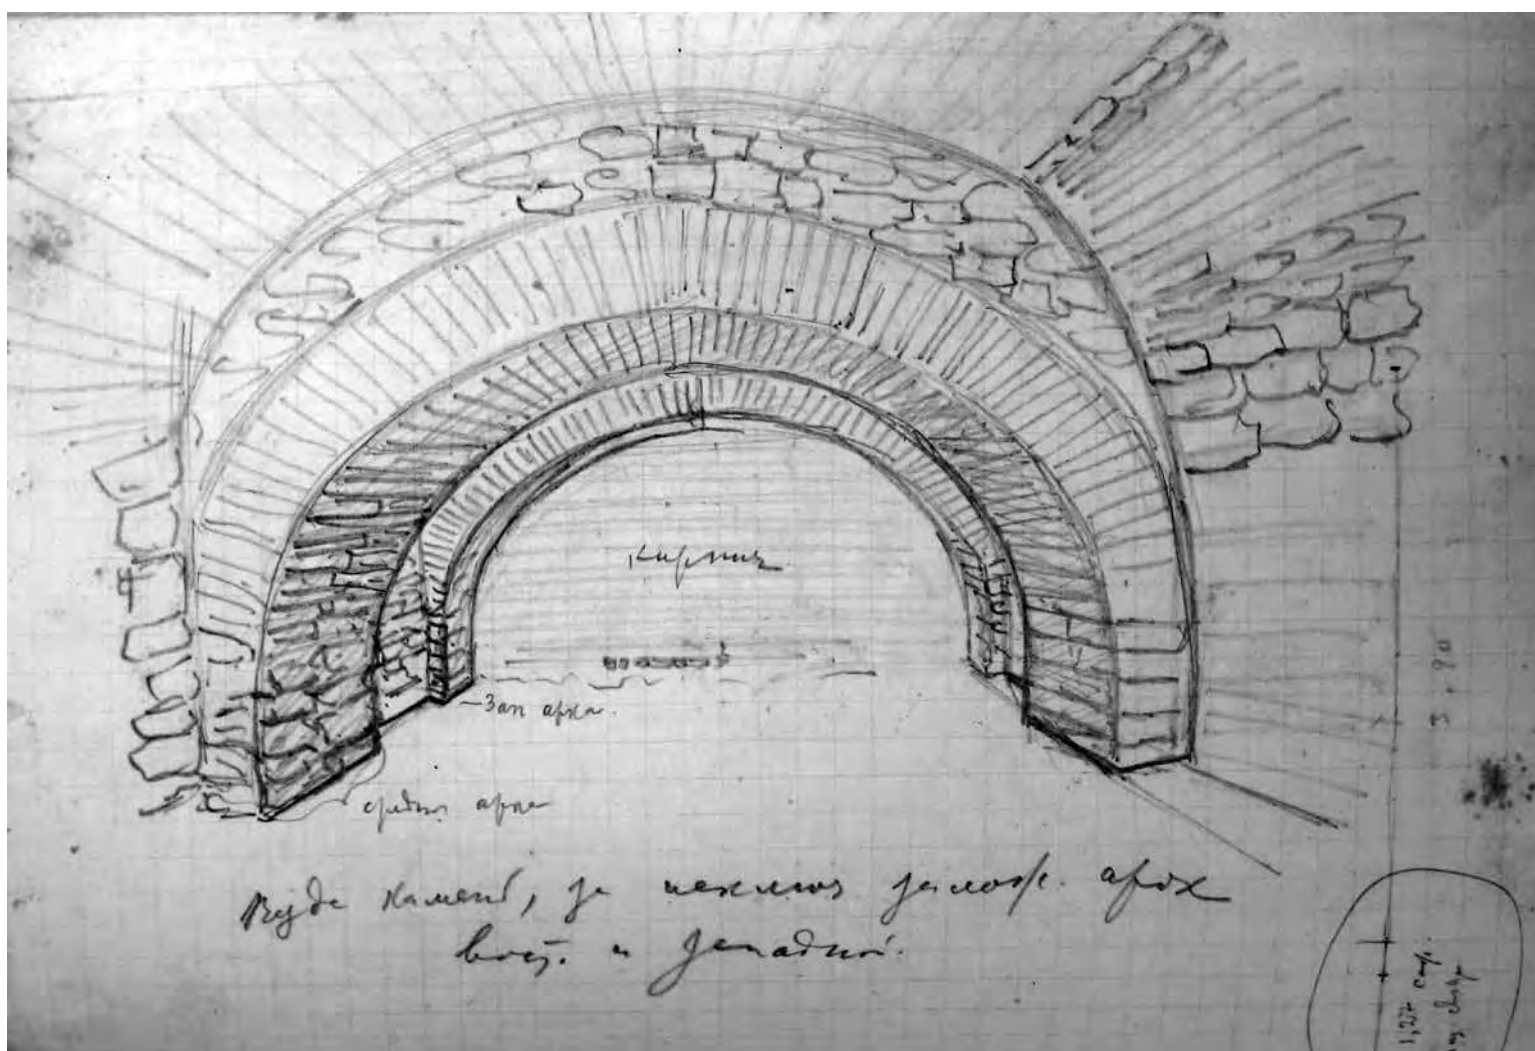 кирпич
Зап арка.
средн арка
Везде камень, за исключ залож. арок
вост. и западной.
3.90
1,27